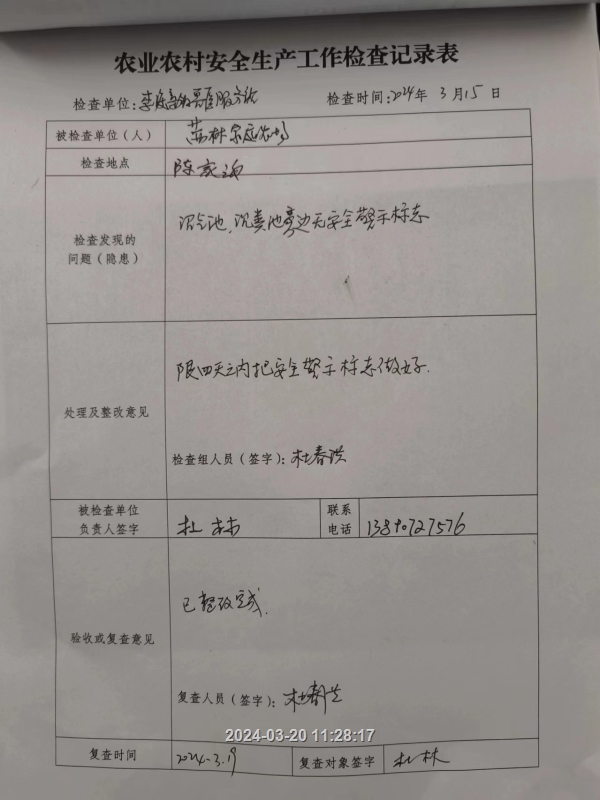 农业农村安全生产工作检查记录表
检查单位: 检查时间:2024年 3月15日
被检查单位(人) 林家庭农场
检查地点 陈家
检查发现的
问题(隐患)
沼气池、沉粪池旁边无安全警示标志
处理及整改意见
限四天之内把安全警示标志做好.
检查组人员(签字): 杜春洪
被检查单位
负责人签字
杜林
联系
电话
13890727576
验收或复查意见
已整改完成.
复查人员(签字):杜春洪
2024-03-20 11:28:17
复查时间 2024.3.19 复查对象签字 杜林